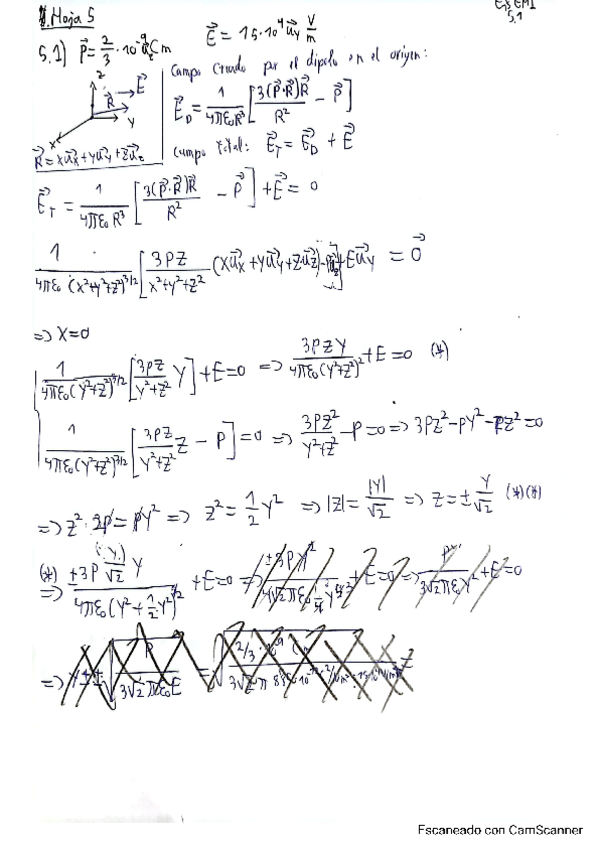 Ejs EM1
5.1
1. Hoja 5
5.1) P⃗ = 2/3 · 10⁻⁹ u⃗z C m    E⃗ = 15·10⁴ u⃗y V/m
Campo creado por el dipolo en el origen:
z
R⃗ E⃗
y
x
E⃗_D = 1/(4πε₀R³) [3(P⃗·R⃗)R⃗/R² − P⃗]
R⃗ = xu⃗x + yu⃗y + zu⃗z
Campo total: E⃗_T = E⃗_D + E⃗
E⃗_T = 1/(4πε₀R³) [3(P⃗·R⃗)R⃗/R² − P⃗] + E⃗ = 0
1/(4πε₀(x²+y²+z²)^3/2) [3PZ/(x²+y²+z²) (xu⃗x + yu⃗y + zu⃗z) − Pu⃗z] + Eu⃗y = 0⃗
=> X=0
1/(4πε₀(y²+z²)^3/2) [3PZ/(y²+z²) Y] + E = 0 => 3PZY/(4πε₀(y²+z²)²) + E = 0 (*)
1/(4πε₀(y²+z²)^3/2) [3PZ/(y²+z²) Z − P] = 0 => 3PZ²/(y²+z²) − P = 0 => 3PZ² − PY² − PZ² = 0
=> Z² 2P = PY² => Z² = 1/2 Y² => |Z| = |Y|/√2 => Z = ± Y/√2 (*)(*)
(*) => ±3P (Y/√2) Y/(4πε₀(Y² + 1/2 Y²)^5/2) + E = 0
Escaneado con CamScanner